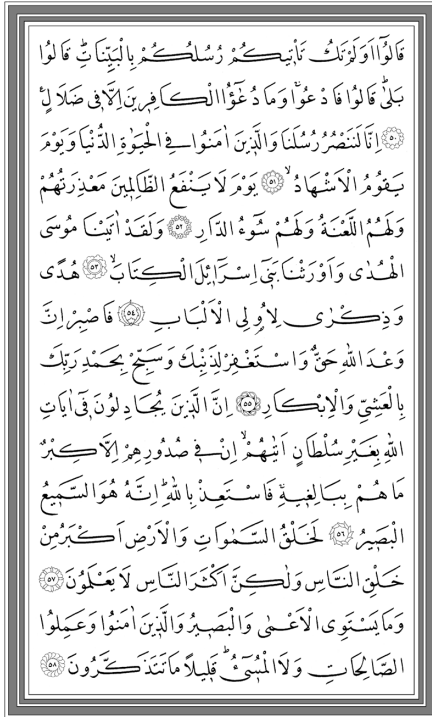 قَالُٓوا اَوَلَمْ تَكُ تَأْت۪يكُمْ رُسُلُكُمْ بِالْبَيِّنَاتِۜ قَالُوا
بَلٰىۜ قَالُوا فَادْعُواۚ وَمَا دُعٰٓؤُا الْكَافِر۪ينَ اِلَّا ف۪ي ضَلَالٍ۟
﴿٥٠﴾ اِنَّا لَنَنْصُرُ رُسُلَنَا وَالَّذ۪ينَ اٰمَنُوا فِي الْحَيٰوةِ الدُّنْيَا وَيَوْمَ
يَقُومُ الْاَشْهَادُۙ ﴿٥١﴾ يَوْمَ لَا يَنْفَعُ الظَّالِم۪ينَ مَعْذِرَتُهُمْ
وَلَهُمُ اللَّعْنَةُ وَلَهُمْ سُٓوءُ الدَّارِ ﴿٥٢﴾ وَلَقَدْ اٰتَيْنَا مُوسَى
الْهُدٰى وَاَوْرَثْنَا بَن۪ٓي اِسْرَٓائ۪لَ الْكِتَابَۙ ﴿٥٣﴾ هُدًى
وَذِكْرٰى لِاُو۬لِي الْاَلْبَابِ ﴿٥٤﴾ فَاصْبِرْ اِنَّ
وَعْدَ اللّٰهِ حَقٌّ وَاسْتَغْفِرْ لِذَنْبِكَ وَسَبِّحْ بِحَمْدِ رَبِّكَ
بِالْعَشِيِّ وَالْاِبْكَارِ ﴿٥٥﴾ اِنَّ الَّذ۪ينَ يُجَادِلُونَ ف۪ٓي اٰيَاتِ
اللّٰهِ بِغَيْرِ سُلْطَانٍ اَتٰيهُمْۙ اِنْ ف۪ي صُدُورِهِمْ اِلَّا كِبْرٌ
مَا هُمْ بِبَالِغ۪يهِۚ فَاسْتَعِذْ بِاللّٰهِۜ اِنَّهُ هُوَ السَّم۪يعُ
الْبَص۪يرُ ﴿٥٦﴾ لَخَلْقُ السَّمٰوَاتِ وَالْاَرْضِ اَكْبَرُ مِنْ
خَلْقِ النَّاسِ وَلٰكِنَّ اَكْثَرَ النَّاسِ لَا يَعْلَمُونَ ﴿٥٧﴾
وَمَا يَسْتَوِي الْاَعْمٰى وَالْبَص۪يرُ وَالَّذ۪ينَ اٰمَنُوا وَعَمِلُوا
الصَّالِحَاتِ وَلَا الْمُس۪ٓيءُۜ قَل۪يلًا مَا تَتَذَكَّرُونَ ﴿٥٨﴾